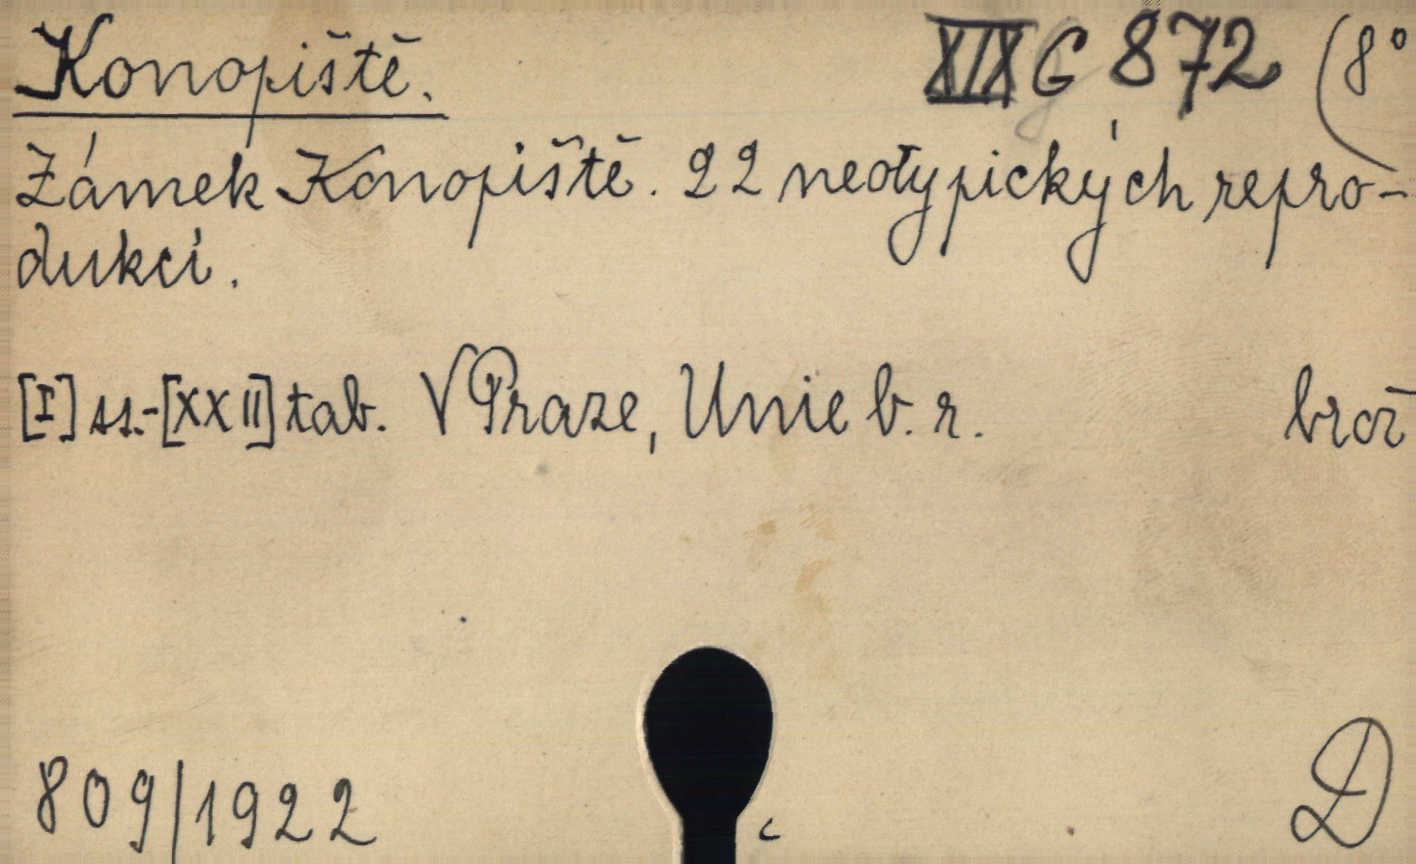 Konopiště. XIX G 872 (8°
Zámek Konopiště. 22 neotypických repro-
dukcí.
[I] ss.-[XXII] tab. V Praze, Unie b. r. brož
809/1922 D